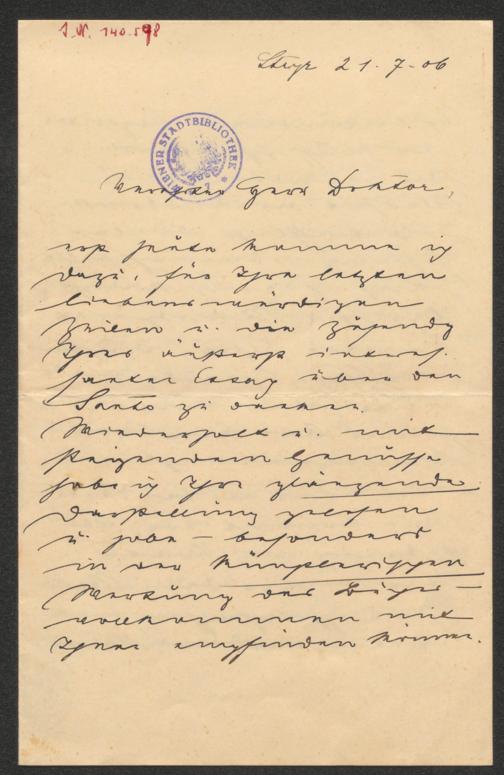 I.N. 140.598
Steyr 21.-7.-06
WIENER STADTBIBLIOTHEK
Verehrter Herr Doktor,
erst heute komme ich
dazu, für Ihre letzten
liebenswürdigen
Zeilen u. die Zusendg
Ihres äußerst interes-
santen Essay über den
Santo zu danken.
Wiederholt u. mit
steigendem Genusse
habe ich Ihre glänzende
Darstellung gelesen
u. habe – besonders
in der künstlerischen
Wertung des Buches –
vollkommen mit
Ihnen empfinden können.